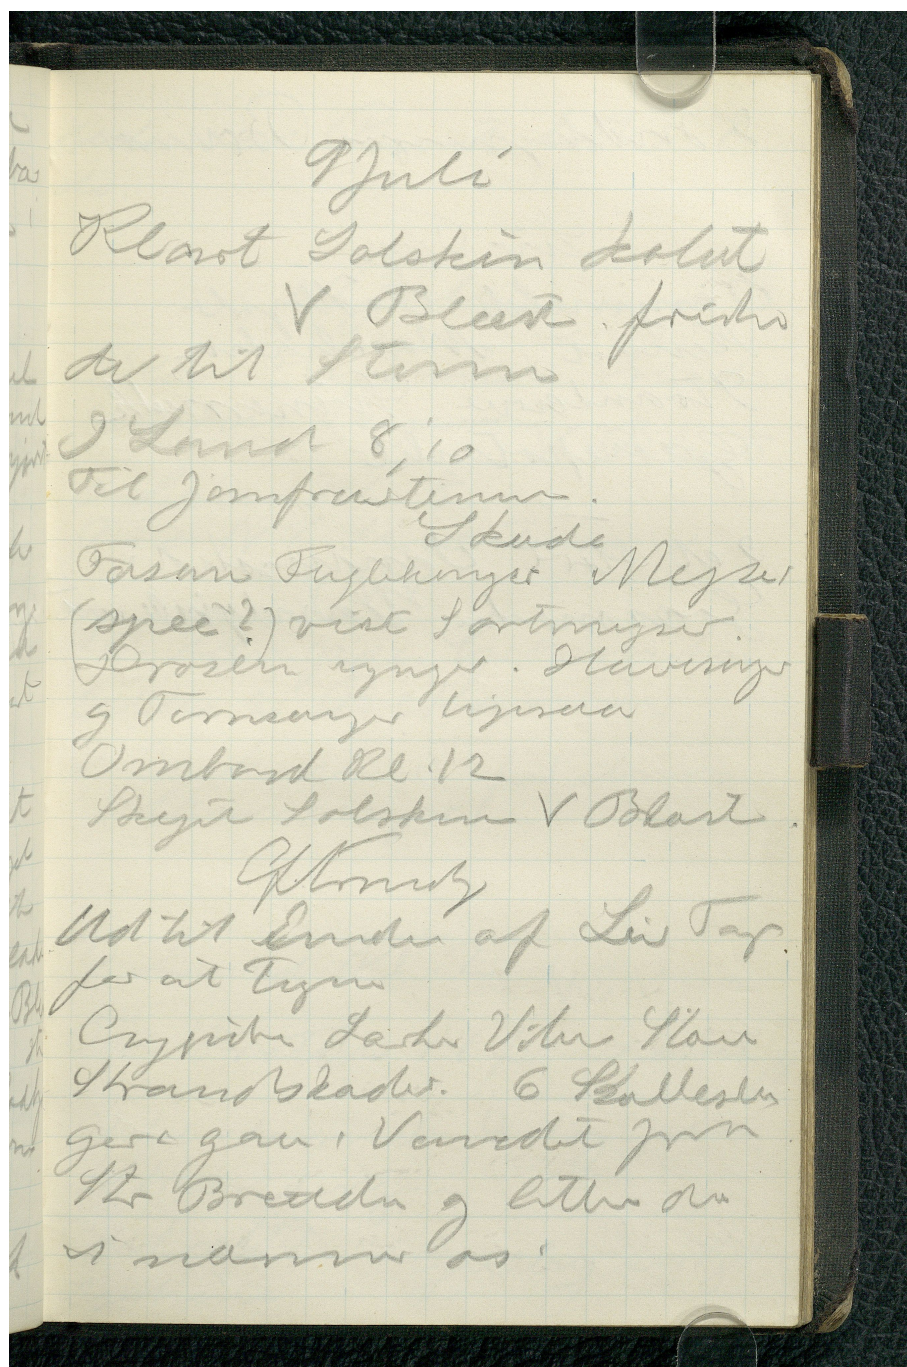 9 Juli
Klart Solskin koldt
V Blæst. friske
de til Storm
I Land 8,10
Til Jomfrustenen.
Skade
Fasan Fuglekonger Mejser
(spec?) vist Sortmejser.
Drosler synger. Havesanger
og Tornsanger ligesaa
Ombord Kl. 12
Skyet Solskin V Blæst.
Eftermdg
Ud til Enden af Lux Tap
for at Tegne
Engpiber Lærker Viber Stære
Strandskader. 6 Skallеslu
gere gaar i Vandet fra
Str Bredden og letter da
vi nærmer os.